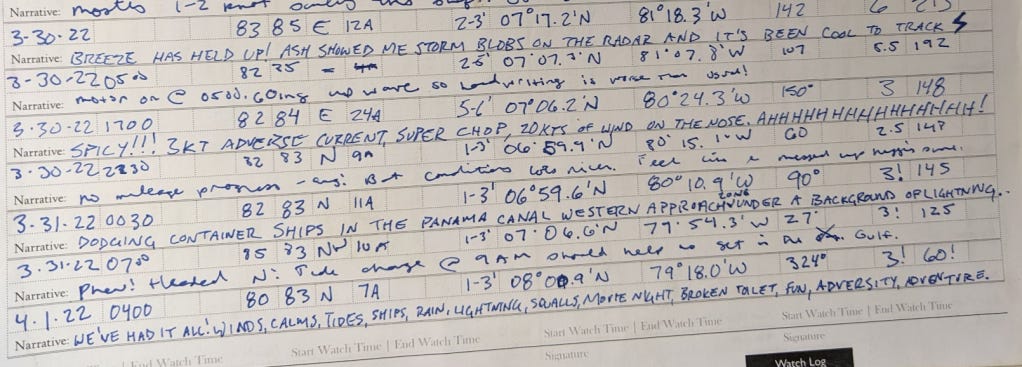 Narrative: mostly 1-2 knot
3-30-22 83 85 E 12A 2-3' 07°17.2'N 81°18.3'W 142 6 213
Narrative: BREEZE HAS HELD UP! ASH SHOWED ME STORM BLOBS ON THE RADAR AND IT'S BEEN COOL TO TRACK
3-30-22 0500 82 85 - 2-5' 07°07.3'N 81°07.8'W 107 5.5 192
Narrative: motor on @ 0500. Going up wave so handwriting is worse than usual!
3-30-22 1700 82 84 E 24A 5-6' 07°06.2'N 80°24.3'W 150° 3 148
Narrative: SPICY!!! 3KT ADVERSE CURRENT, SUPER CHOP, 20KTS OF WIND ON THE NOSE. AHHHHHHHHHHHHHH!
3-30-22 2230 82 83 N 9A 1-3' 06°59.9'N 80°15.1'W 60 2.5 147
Narrative: no mileage progress - argh! But conditions were nicer. Feel like a messed up
3-31-22 0030 82 83 N 11A 1-3' 06°59.6'N 80°10.9'W 90° 3! 145
Narrative: DODGING CONTAINER SHIPS IN THE PANAMA CANAL WESTERN APPROACH ZONE UNDER A BACKGROUND OF LIGHTNING..
3-31-22 0700 85 83 NW 10A 1-3' 07°06.6'N 79°54.3'W 27° 3! 125
Narrative: Phew! Headed N! Tide change @ 9AM should help us get in the Gulf.
4.1.22 0400 80 83 N 7A 1-3' 08°09'N 79°18.0'W 324° 3! 60!
Narrative: WE'VE HAD IT ALL! WINDS, CALMS, TIDES, SHIPS, RAIN, LIGHTNING, SQUALLS, MOVIE NIGHT, BROKEN TOILET, FUN, ADVERSITY, ADVENTURE.
End Watch Time Start Watch Time | End Watch Time Start Watch Time | End Watch Time Start Watch Time | End Watch Time
Signature Signature
Watch Log